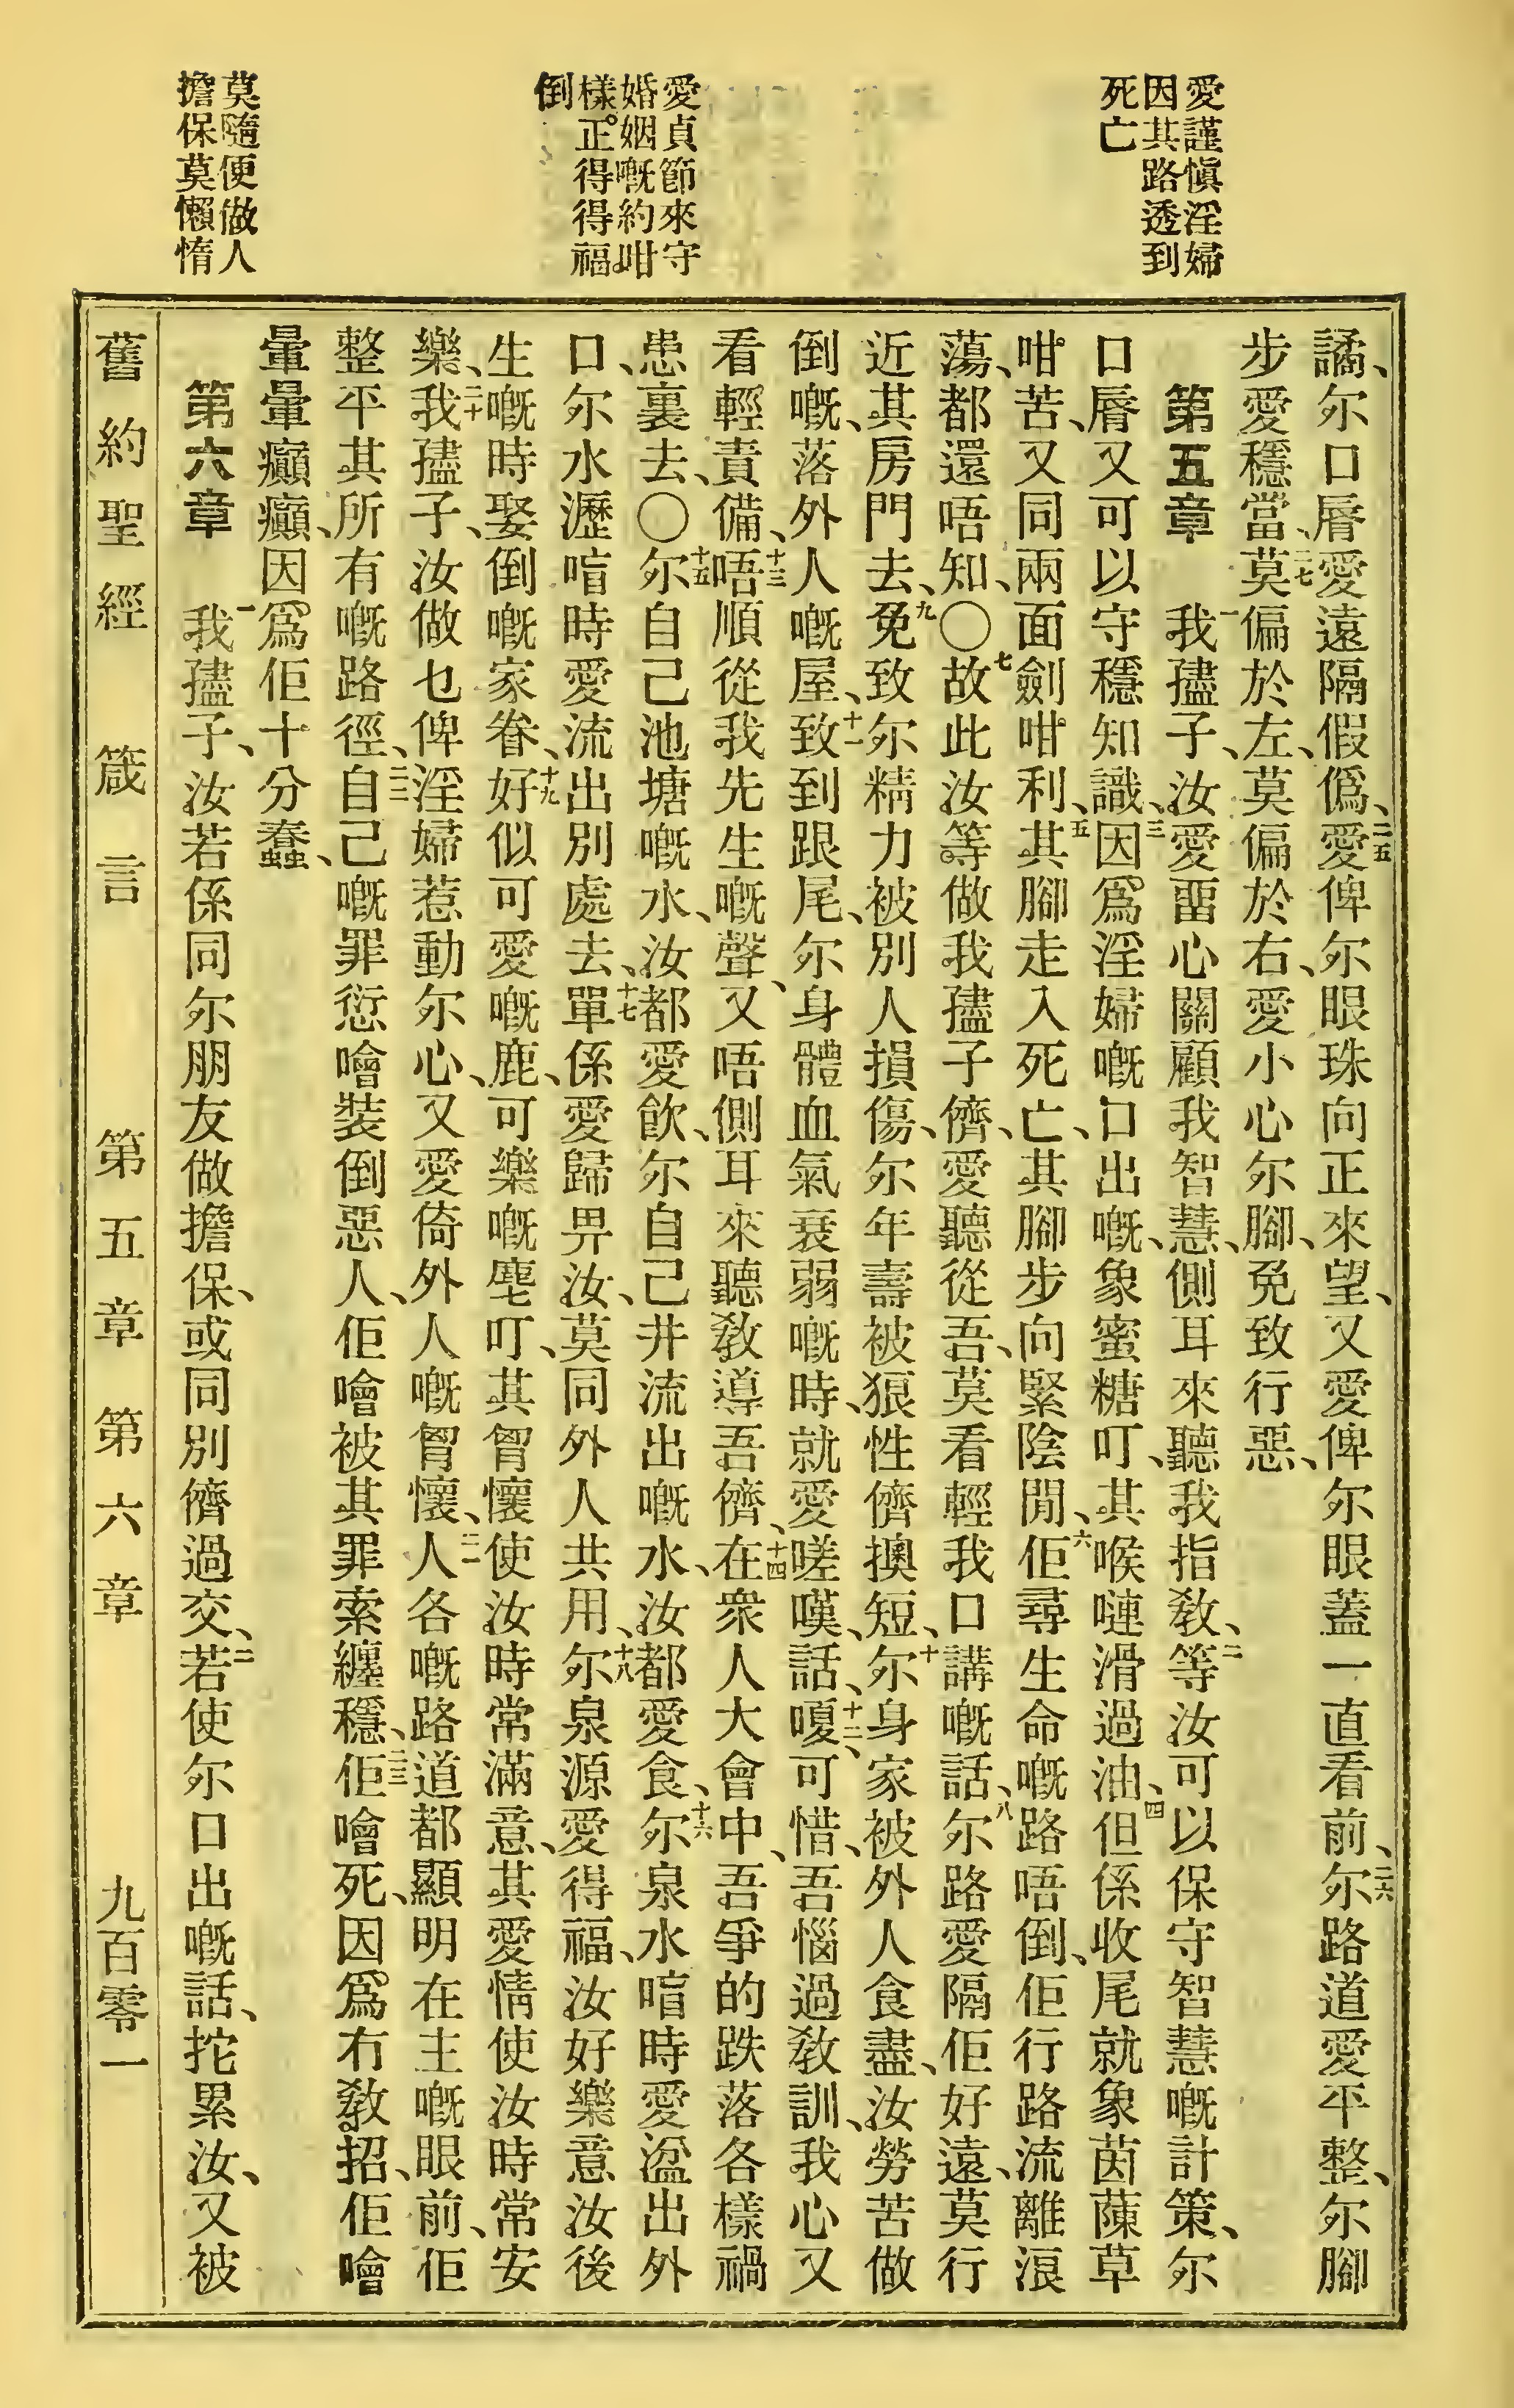 愛謹愼淫婦
因其路透到
死亡
愛貞節來守
婚姻嘅約咁
樣正得得福
倒
莫隨便做人
擔保莫懶惰
譎、尔口脣愛遠隔假僞、二五愛俾尔眼珠向正來望、又愛俾尔眼蓋一直看前、二六尔路道愛平整、尔腳
步愛穩當、二七莫偏於左、莫偏於右、愛小心尔腳、免致行惡、
第五章 一我㜽子、汝愛畱心關顧我智慧、側耳來聽我指敎、二等汝可以保守智慧嘅計策、尔
口脣又可以守穩知識、三因爲淫婦嘅口出嘅、象蜜糖叮、其喉嗹滑過油、四但係收尾就象茵蔯草
咁苦、又同兩面劍咁利、五其腳走入死亡、其腳步向緊陰閒、六佢尋生命嘅路唔倒、佢行路流離浪
蕩、都還唔知、〇七故此汝等做我㜽子儕、愛聽從吾、莫看輕我口講嘅話、八尔路愛隔佢好遠、莫行
近其房門去、九免致尔精力被別人損傷、尔年壽被狠性儕擙短、十尔身家被外人食盡、汝勞苦做
倒嘅、落外人嘅屋、十一致到跟尾、尔身體血氣衰弱嘅時、就愛嗟嘆、話、十二嗄、可惜、吾惱過敎訓、我心又
看輕責備、十三唔順從我先生嘅聲、又唔側耳來聽敎導吾儕、十四在衆人大會中、吾爭的跌落各樣禍
患裏去、〇十五尔自己池塘嘅水、汝都愛飲、尔自己井流出嘅水、汝都愛食、十六尔泉水喑時愛湓出外
口、尔水瀝喑時愛流出別處去、十七單係愛歸畀汝、莫同外人共用、十八尔泉源愛得福、汝好樂意汝後
生嘅時娶倒嘅家眷、十九好似可愛嘅鹿、可樂嘅麈叮、其胷懷使汝時常滿意、其愛情使汝時常安
樂、二十我㜽子、汝做乜俾淫婦惹動尔心、又愛倚外人嘅胷懷、二一人各嘅路道都顯明在主嘅眼前、佢
整平其所有嘅路徑、二二自己嘅罪愆噲裝倒惡人、佢噲被其罪索纏穩、二三佢噲死、因爲冇敎招、佢噲
暈暈癲癲、因爲佢十分蠢、
第六章 一我㜽子、汝若係同尔朋友做擔保、或同別儕過交、二若使尔口出嘅話、拕累汝、又被
舊約聖經 箴言 第五章 第六章 九百零一